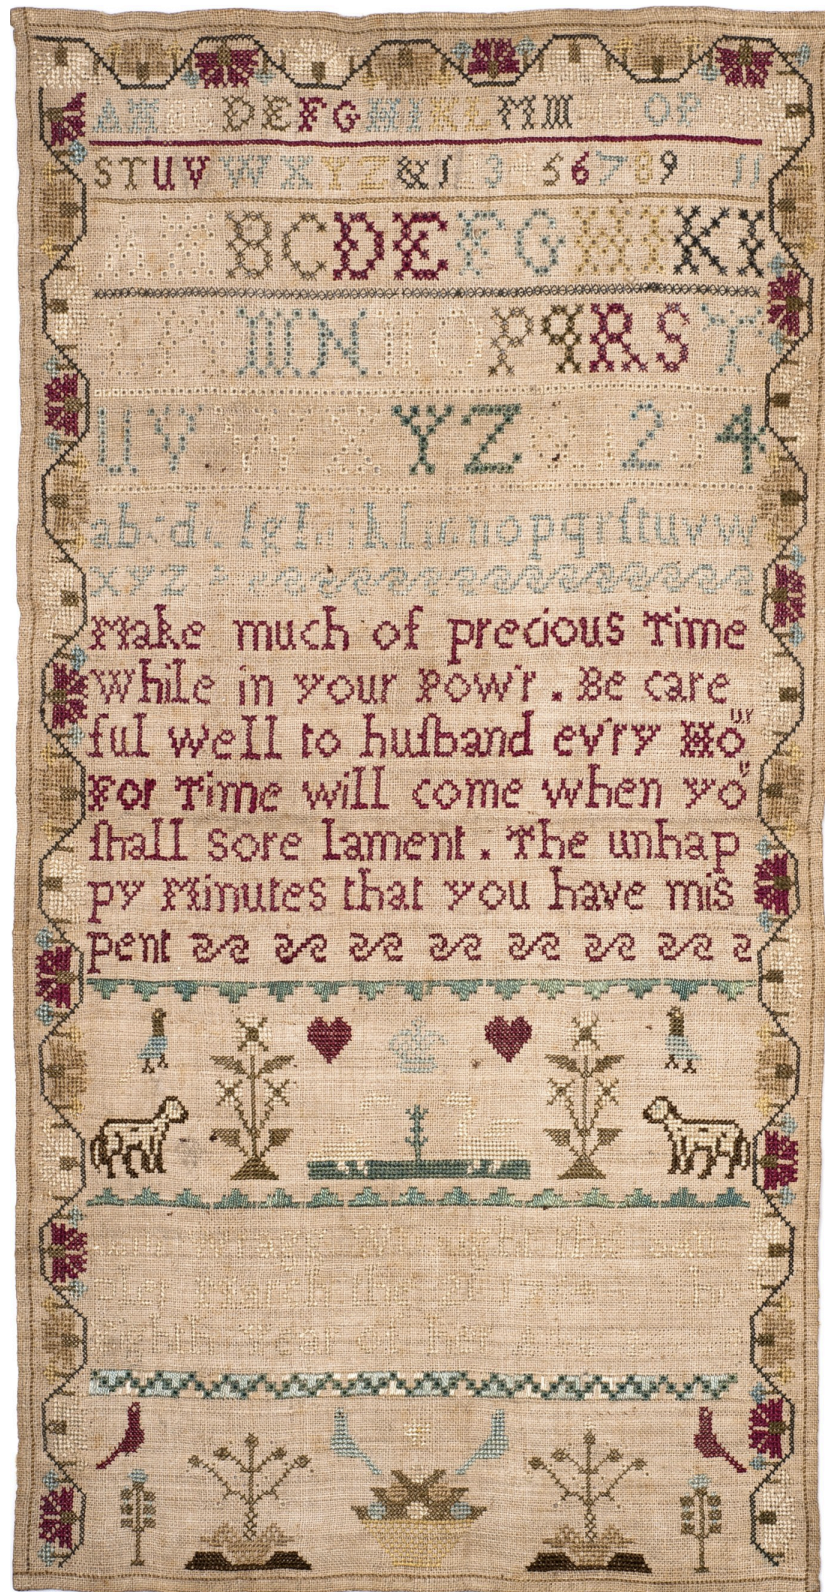 A B C D E F G H I K L M O P
S T U V W X Y Z & 1 2 3 4 5 6 7 8 9 10 11
A B C D E F G H I K
L M N O P q R S T
U V W X Y Z 1 2 3 4
a b c d e f g h i j k l m n o p q r ſ t u v w
x y z
Make much of precious Time
While in your Pow'r . Be care
ful well to huſband ev'ry Hoᵘʳ
For Time will come when yoᵘ
ſhall sore lament . The unhap
py Minutes that you have mis
pent
March the
eighth year of her